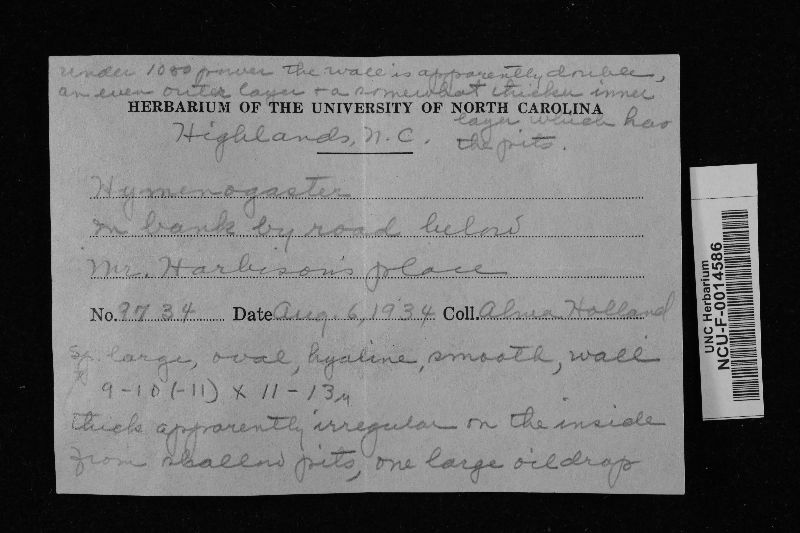 under 1000 power the wall is apparently double,
an even outer layer + a somewhat thicker inner
layer which has
the pits.
HERBARIUM OF THE UNIVERSITY OF NORTH CAROLINA
Highlands, N.C.
Hymenogaster
on bank by road below
Mr. Harbison's place
No. 9734 Date Aug. 6, 1934 Coll. Alma Holland
Sp. large, oval, hyaline, smooth, wall
9-10(-11) x 11-13µ
thick apparently irregular on the inside
from shallow pits, one large oildrop
UNC Herbarium
NCU-F-0014586